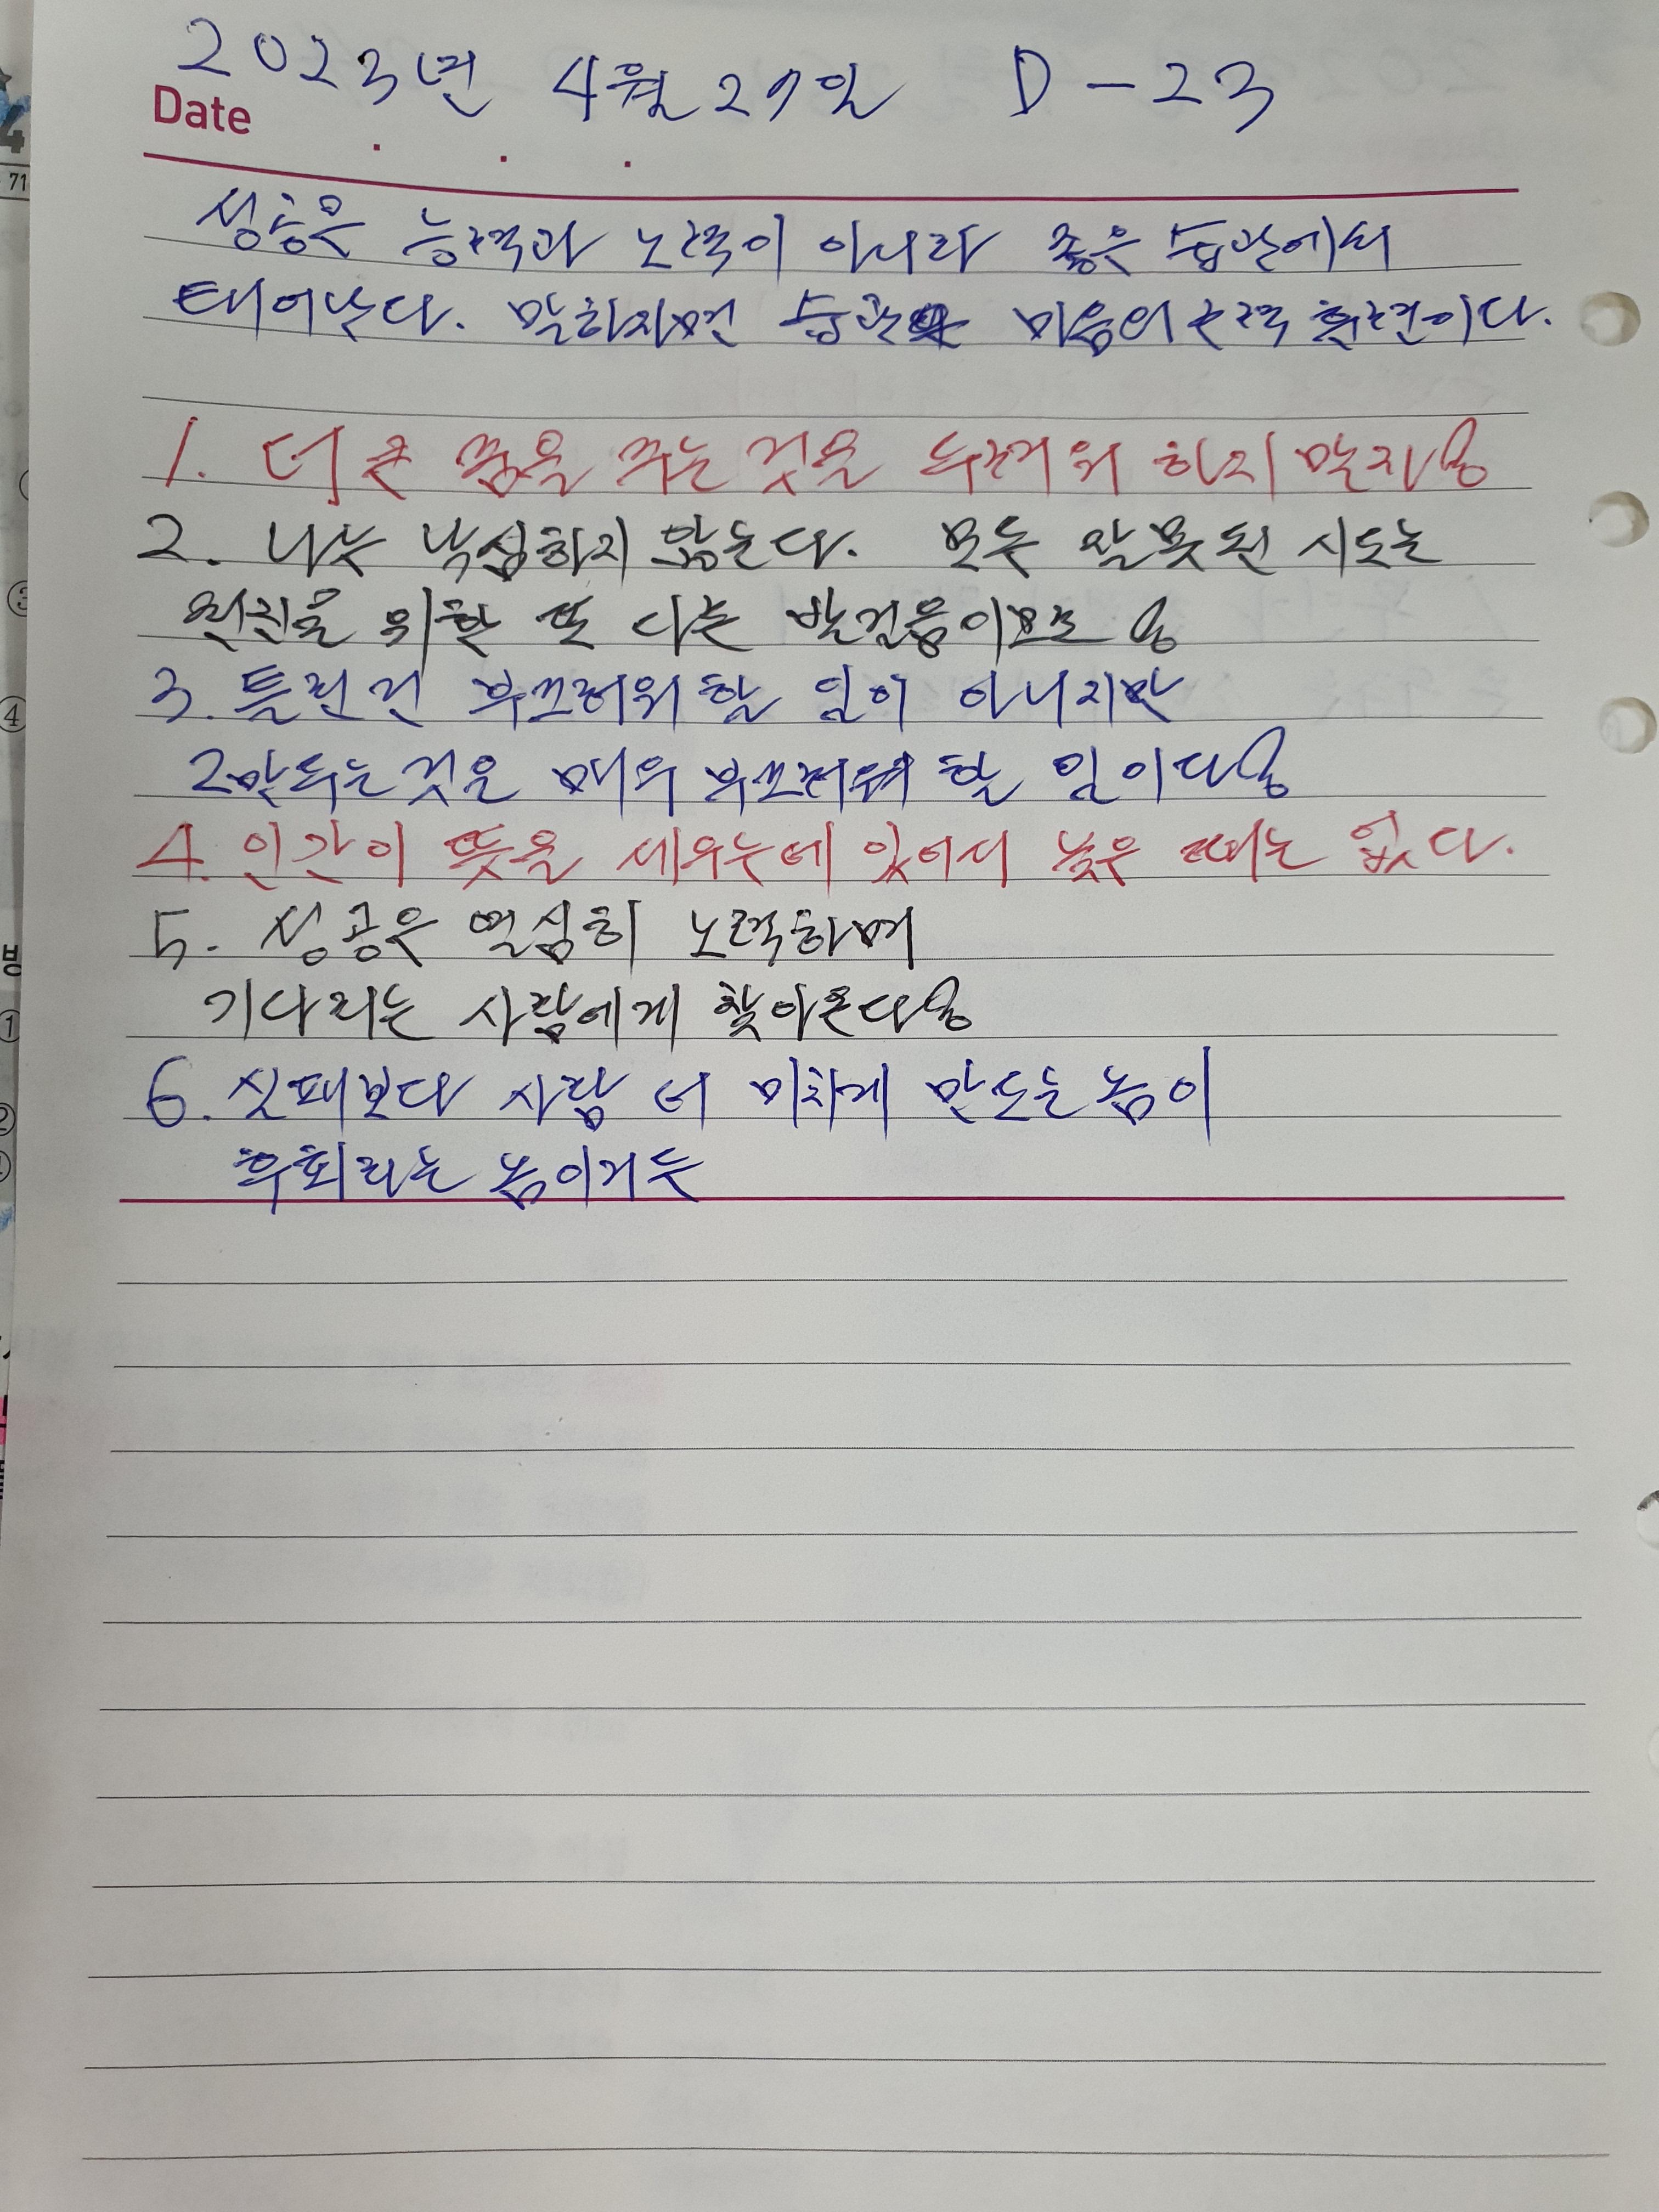 2023년 4월 27일 D-23
Date
성공은 능력과 노력이 아니라 좋은 습관에서
태어난다. 말하자면 습관은 마음의 근력 훈련이다.
1. 더 큰 꿈을 꾸는 것을 두려워 하지 말지어다
2. 나는 낙심하지 않는다. 모든 잘못된 시도는
전진을 위한 또 다른 발걸음이므로
3. 틀린건 부끄러워할 일이 아니지만
그만두는 것은 매우 부끄러워 할 일이다
4. 인간이 뜻을 세우는데 있어서 늦은 때는 없다.
5. 성공은 열심히 노력하며
기다리는 사람에게 찾아온다
6. 실패보다 사람 더 미치게 만드는 놈이
후회라는 놈이거든
71
③
④
①
②